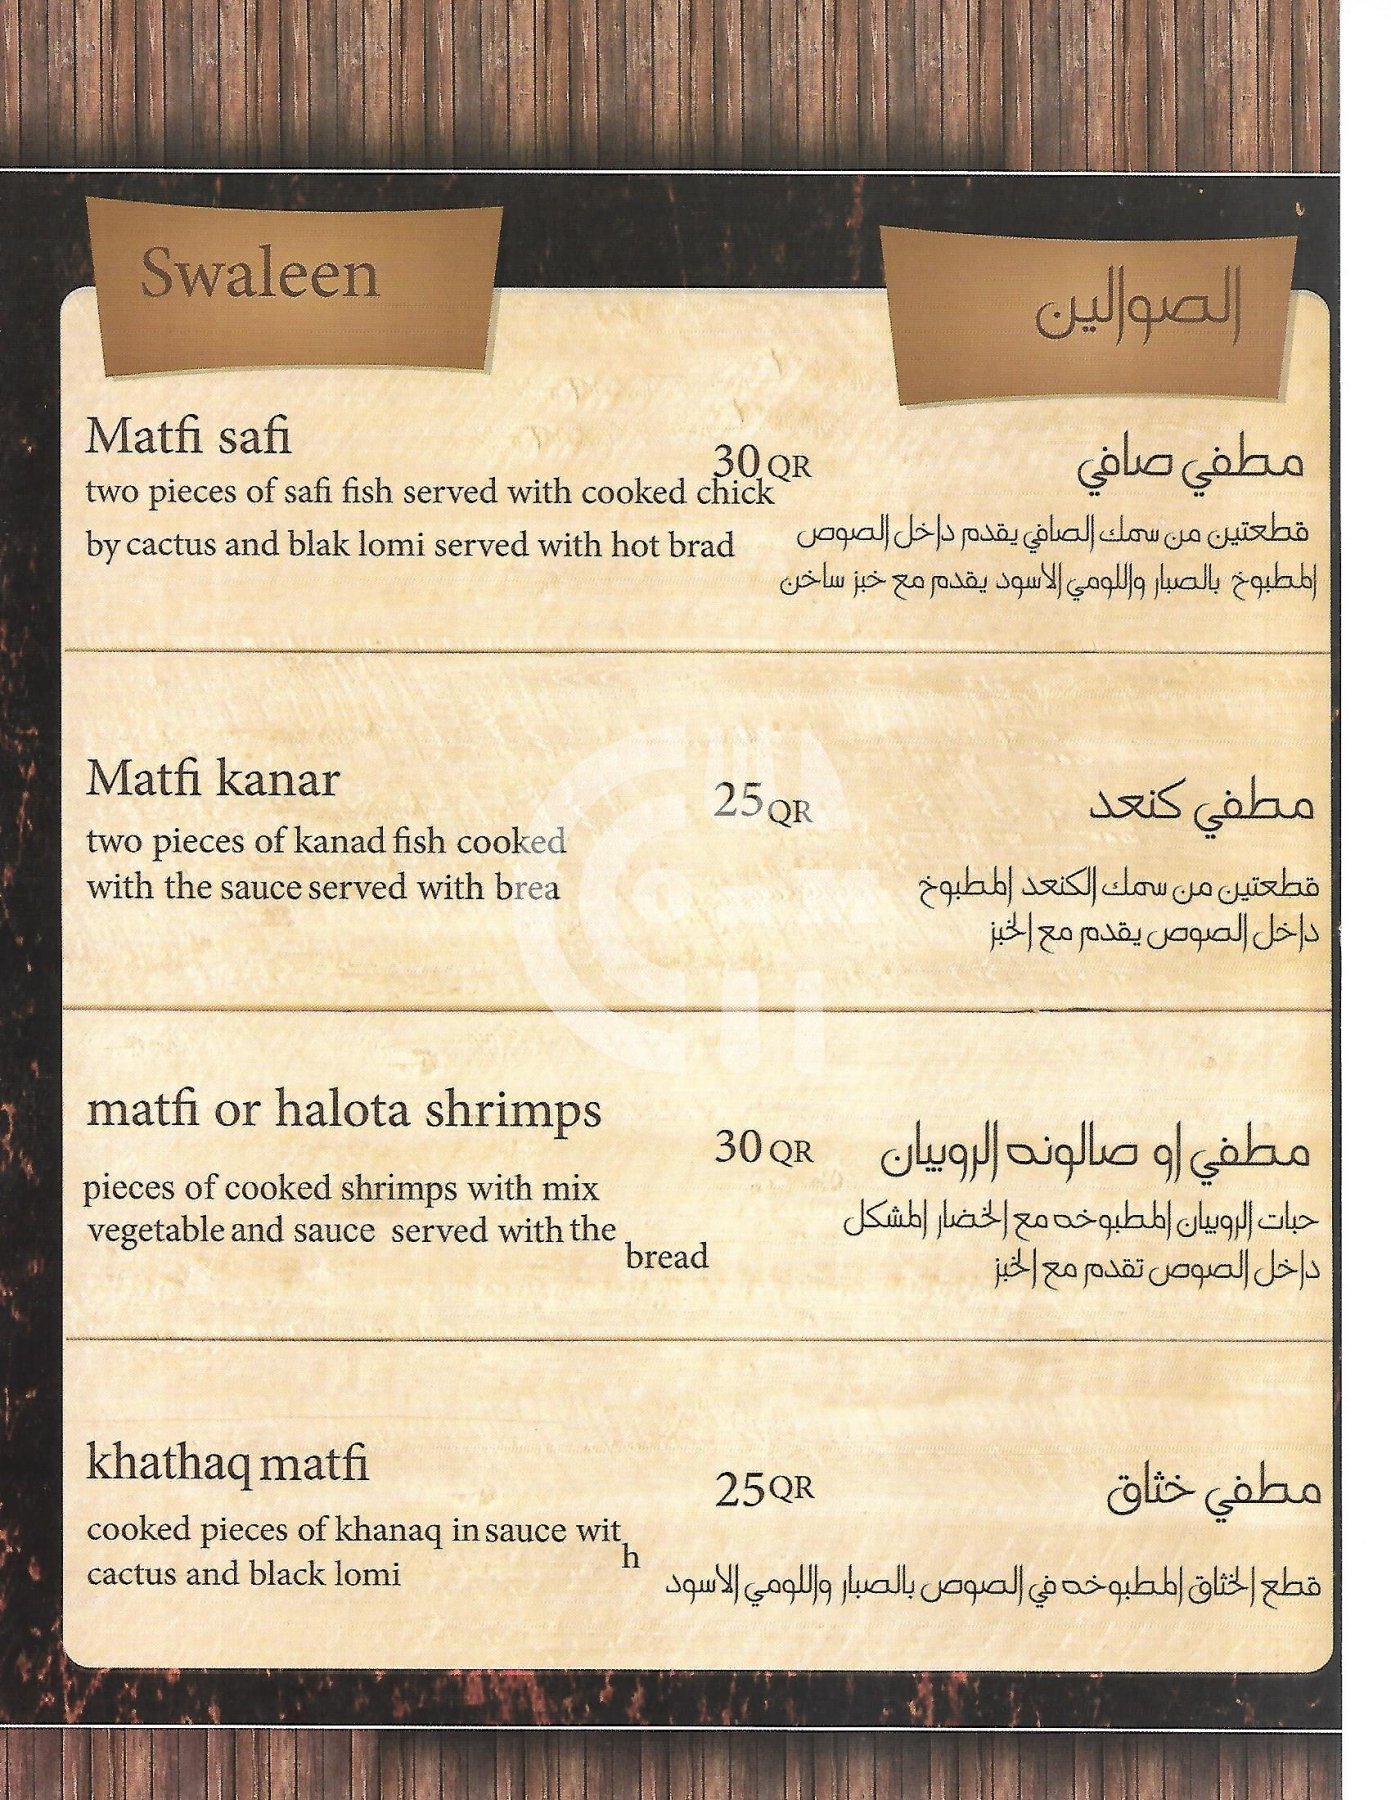 Swaleen
الصوالين
Matfi safi
30 QR
مطفي صافي
two pieces of safi fish served with cooked chick
by cactus and blak lomi served with hot brad
قطعتين من سمك الصافي يقدم داخل الصوص
المطبوخ بالصبار واللومي الاسود يقدم مع خبز ساخن
Matfi kanar
25 QR
مطفي كنعد
two pieces of kanad fish cooked
with the sauce served with brea
قطعتين من سمك الكنعد المطبوخ
داخل الصوص يقدم مع الخبز
matfi or halota shrimps
30 QR
مطفي او صالونه الروبيان
pieces of cooked shrimps with mix
vegetable and sauce served with the
bread
حبات الروبيان المطبوخه مع الخضار المشكل
داخل الصوص تقدم مع الخبز
khathaq matfi
25 QR
مطفي خثاق
cooked pieces of khanaq in sauce wit
h
cactus and black lomi
قطع الخثاق المطبوخه في الصوص بالصبار واللومي الاسود